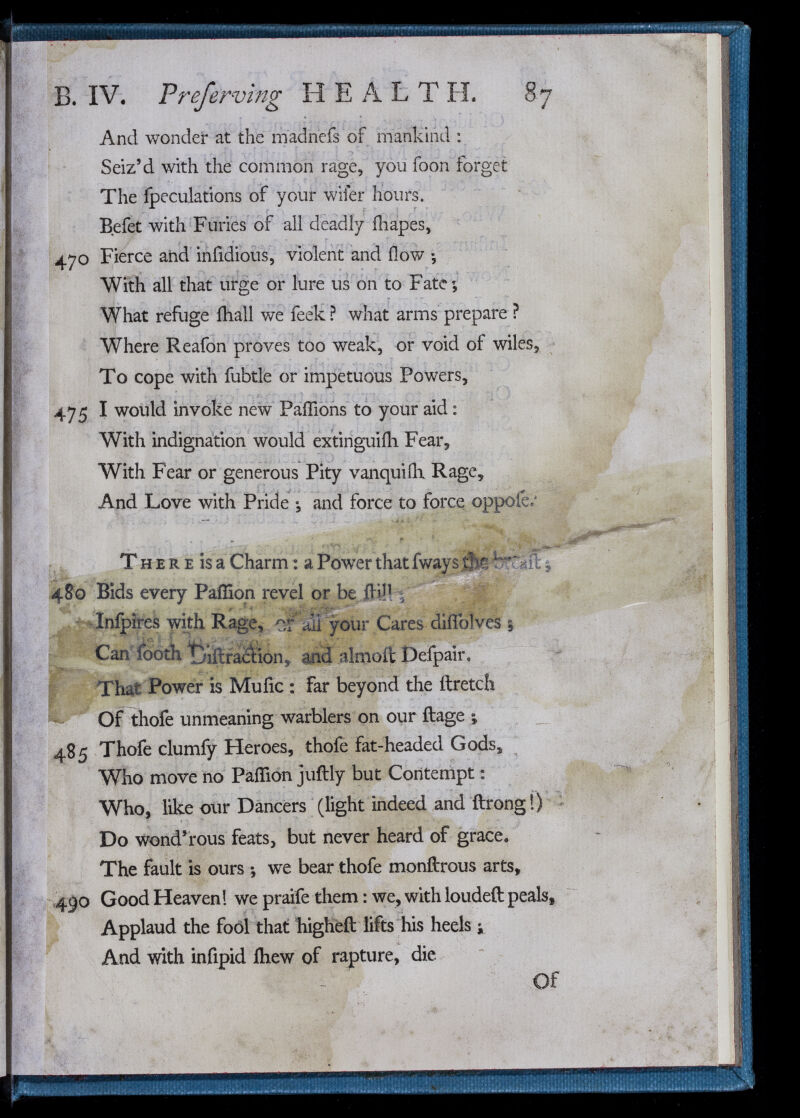 B. IV. Preſerving HEALTH. 87
And wonder at the madneſs of mankind :
Seiz'd with the common rage, you ſoon forget
The ſpeculations of your wiſer hours.
Beſet with Furies of all deadly ſhapes,
470 Fierce and inſidious, violent and ſlow ;
With all that urge or lure us on to Fate ;
What refuge ſhall we ſeek ? what arms prepare ?
Where Reaſon proves too weak, or void of wiles,
To cope with ſubtle or impetuous Powers,
475 I would invoke new Paſſions to your aid :
With indignation would extinguiſh Fear,
With Fear or generous Pity vanquiſh Rage,
And Love with Pride ; and force to force oppoſe.
THERE is a Charm : a Power that ſways the breaſt ;
480 Bids every Paſſion revel or be ſtill ;
Inſpires with Rage, or all your Cares diſſolves ;
Can ſooth Diſtraction, and almoſt Deſpair.
That Power is Muſic : far beyond the ſtretch
Of thoſe unmeaning warblers on our ſtage ;
485 Thoſe clumſy Heroes, thoſe fat-headed Gods,
Who move no Paſſion juſtly but Contempt :
Who, like our Dancers (light indeed and ſtrong !)
Do wond'rous feats, but never heard of grace.
The fault is ours ; we bear thoſe monſtrous arts,
490 Good Heaven! we praiſe them : we, with loudeſt peals,
Applaud the fool that higheſt lifts his heels ;
And with inſipid ſhew of rapture, die
Of